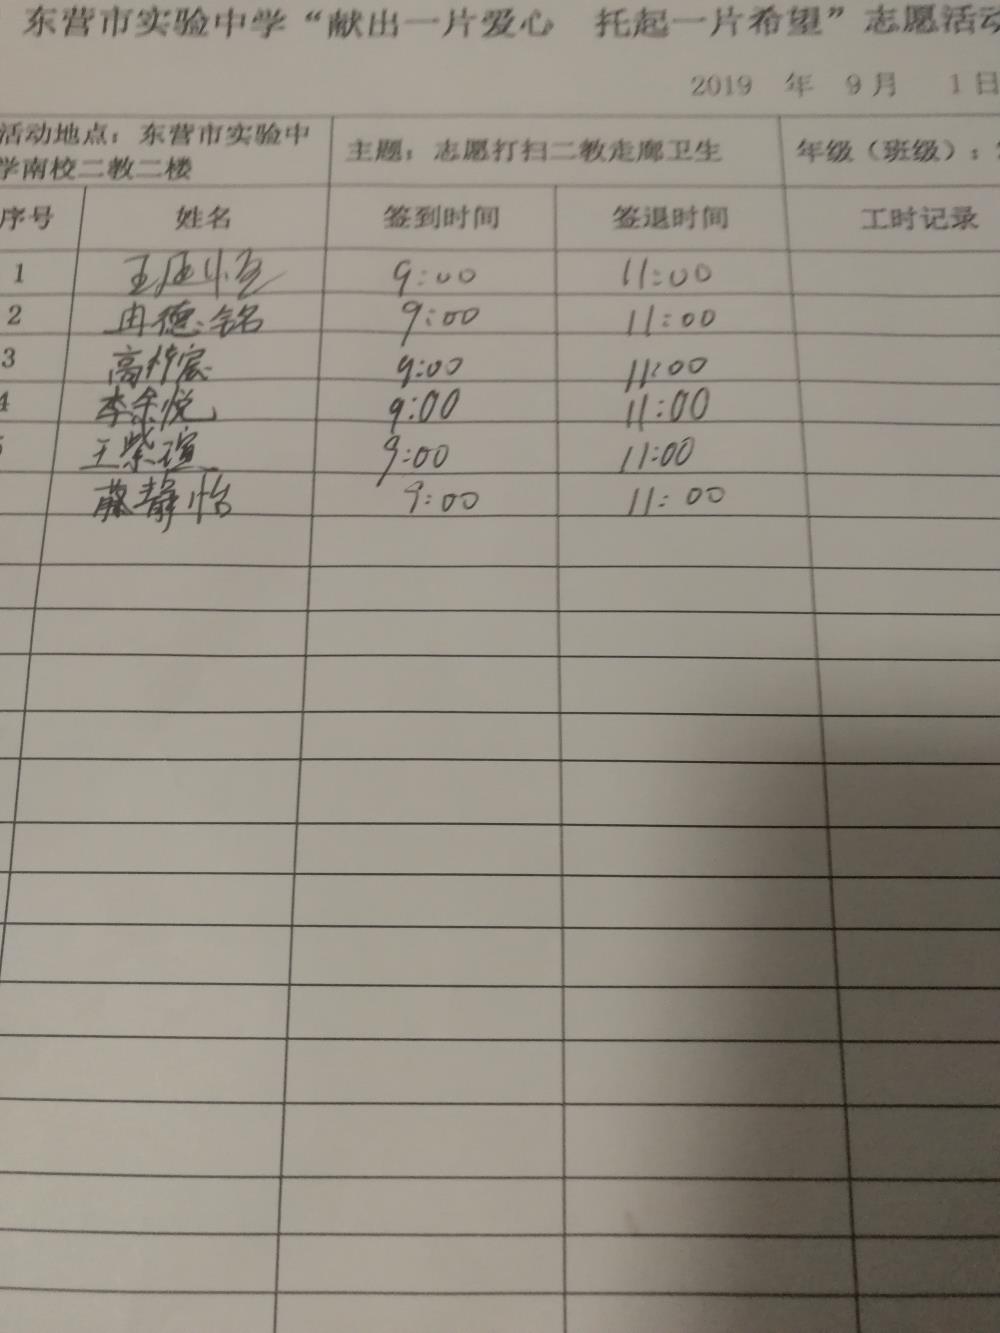 东营市实验中学“献出一片爱心 托起一片希望”志愿活动
2019 年 9月 1日
活动地点：东营市实验中 主题：志愿打扫二教走廊卫生 年级（班级）：
学南校二教二楼
序号 姓名 签到时间 签退时间 工时记录
1 王 9:00 11:00
2 冉德铭 9:00 11:00
3 高 9:00 11:00
4 李余悦 9:00 11:00
王紫瑄 9:00 11:00
藤静怡 9:00 11:00